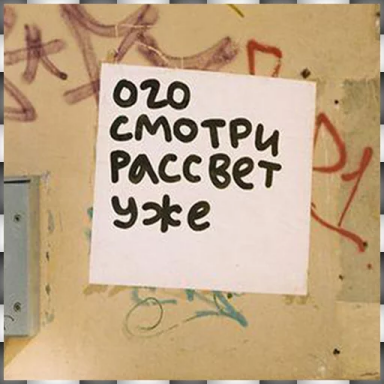 ого
смотри
рассвет
уже